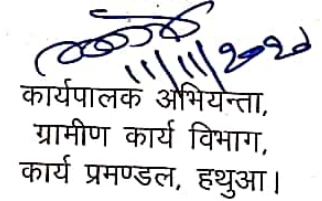 11/11/2020
कार्यपालक अभियन्ता,
ग्रामीण कार्य विभाग,
कार्य प्रमण्डल, हथुआ।